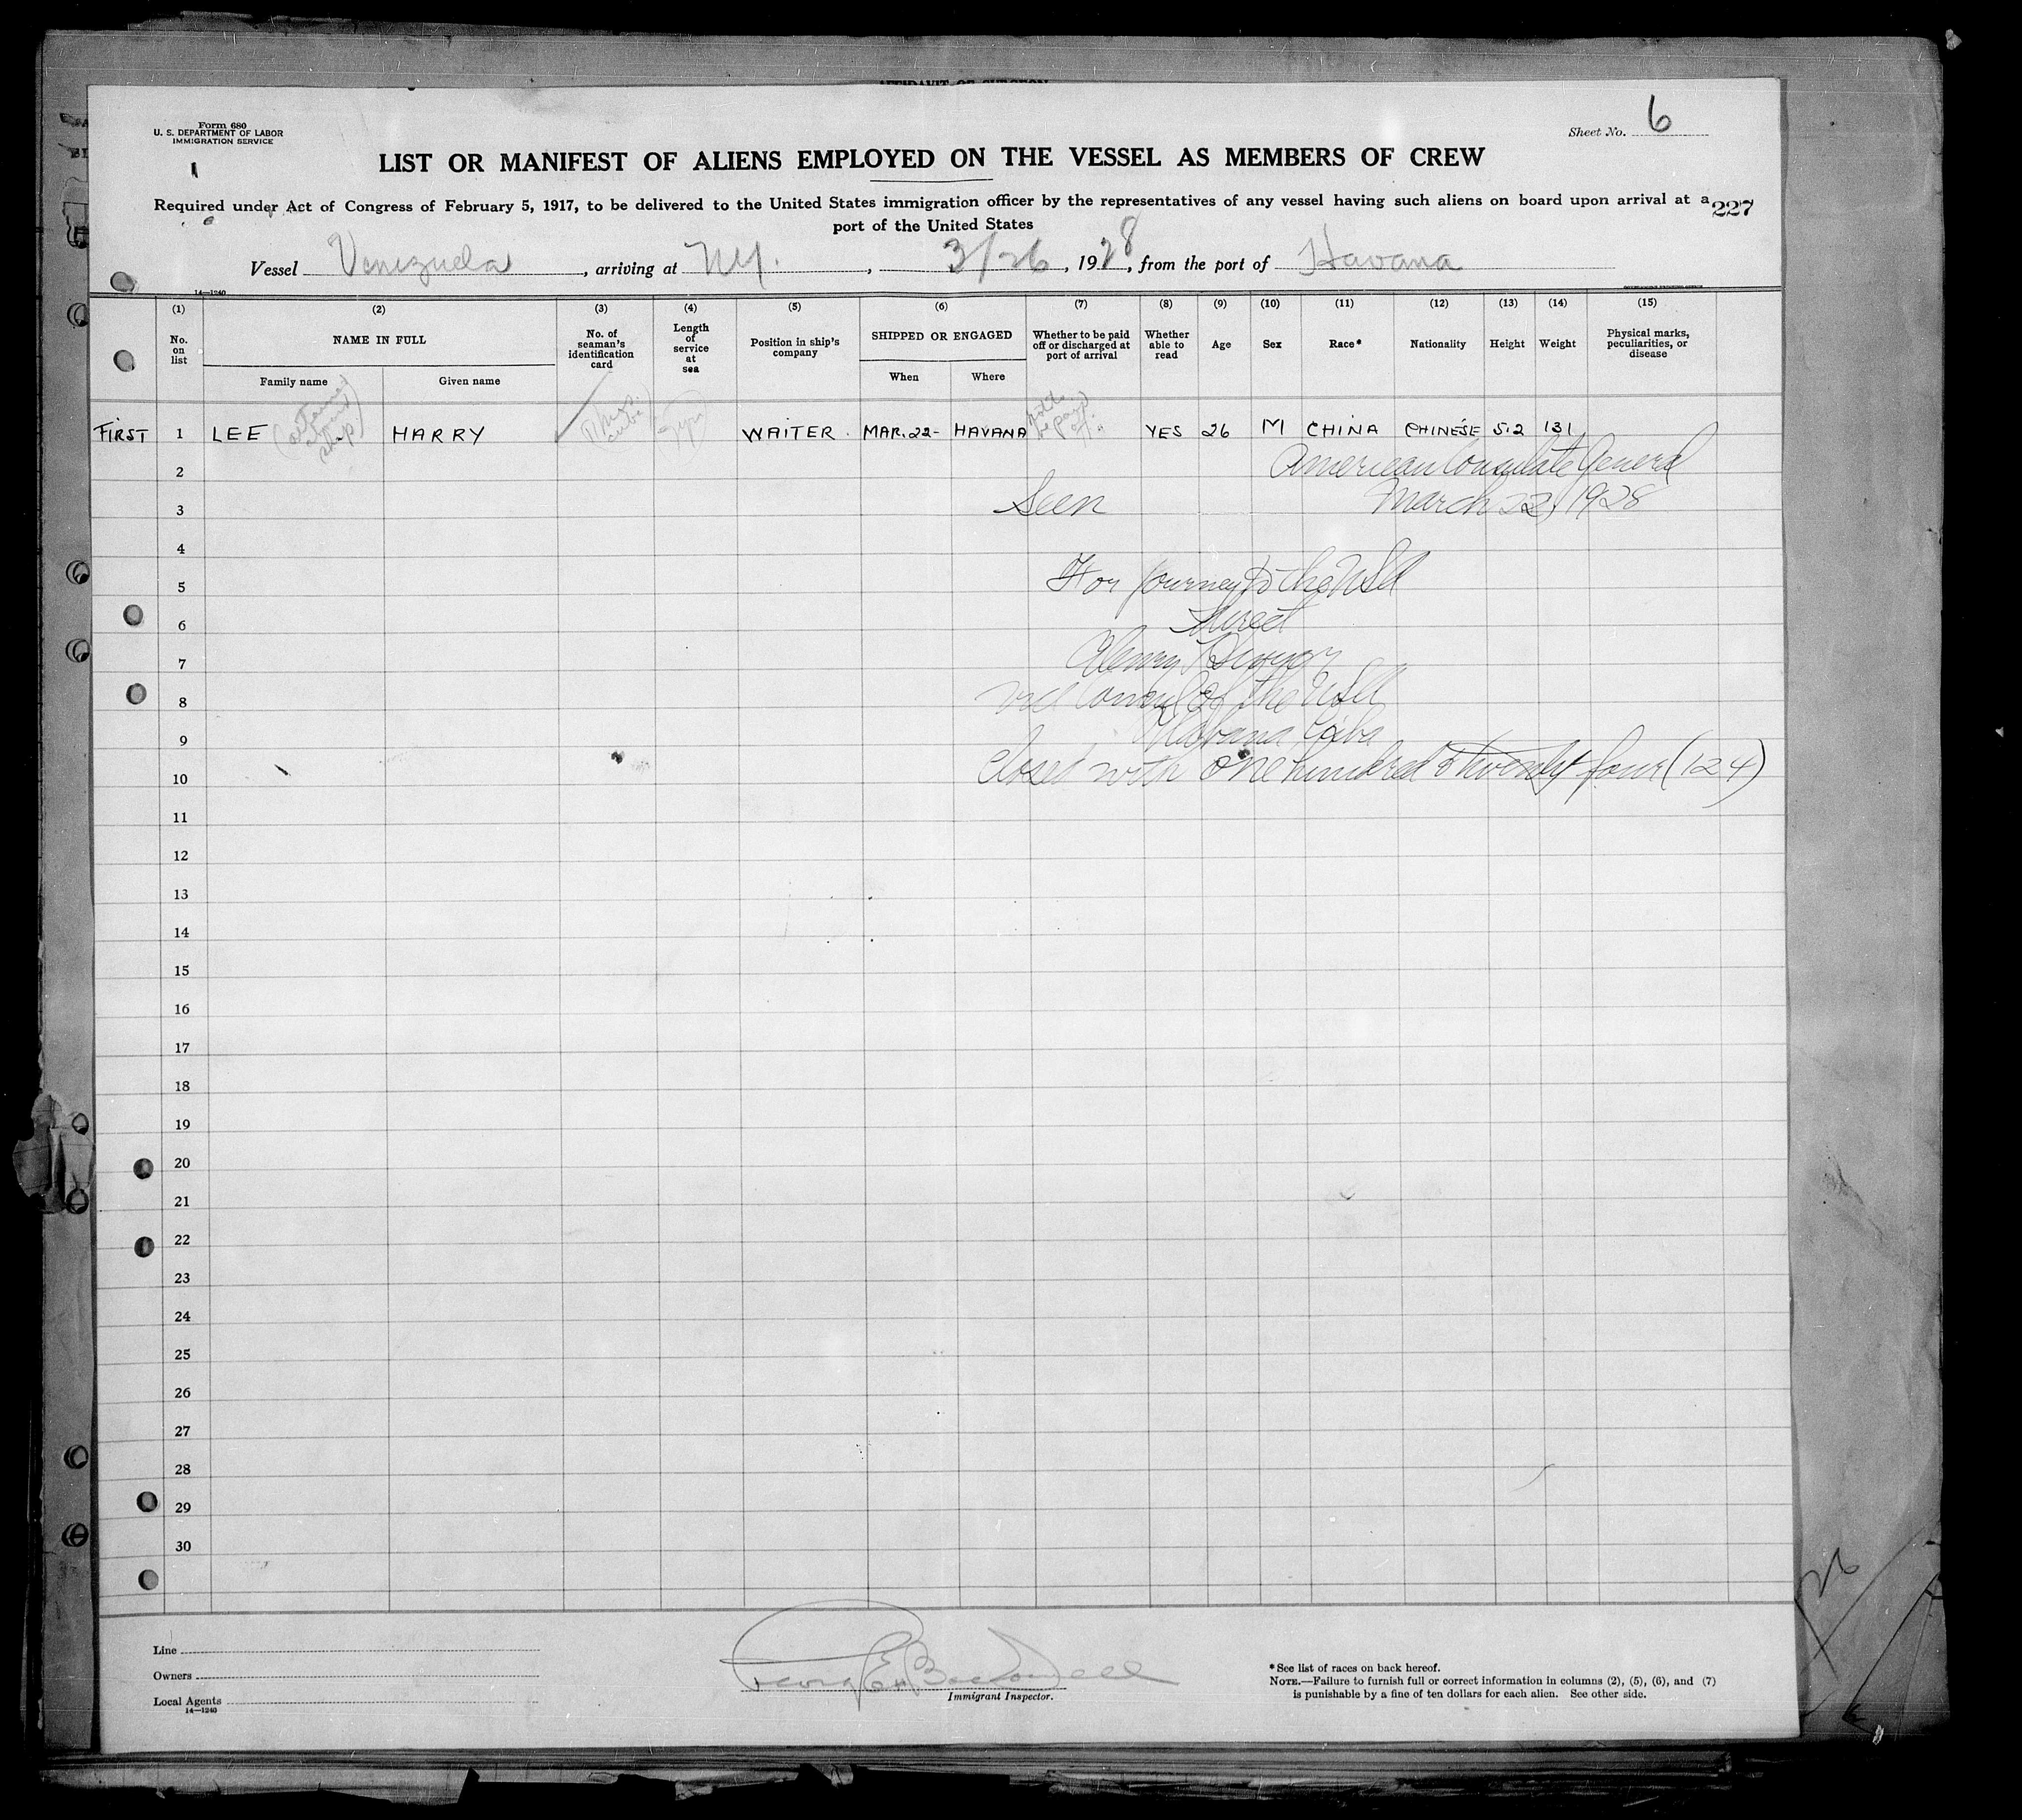 Form 680
U. S. DEPARTMENT OF LABOR
IMMIGRATION SERVICE
Sheet No. 6
LIST OR MANIFEST OF ALIENS EMPLOYED ON THE VESSEL AS MEMBERS OF CREW
Required under Act of Congress of February 5, 1917, to be delivered to the United States immigration officer by the representatives of any vessel having such aliens on board upon arrival at a
port of the United States
227
Vessel Venezuela, arriving at NY., 3/26, 1928, from the port of Havana
14—1240
(1) (2) (3) (4) (5) (6) (7) (8) (9) (10) (11) (12) (13) (14) (15)
No. on list
NAME IN FULL
Family name
Given name
No. of seaman's identification card
Length of service at sea
Position in ship's company
SHIPPED OR ENGAGED
When
Where
Whether to be paid off or discharged at port of arrival
Whether able to read
Age
Sex
Race*
Nationality
Height
Weight
Physical marks, peculiarities, or disease
FIRST 1 LEE HARRY WAITER. MAR. 22- HAVANA YES 26 M CHINA CHINESE 5.2 131
2 American Consulate General
3 Seen March 22, 1928
4
5 For journey to the USA
6 direct
7
8 Vice Consul of the USA
9 Habana, Cuba
10 Closed with one hundred & twenty four (124)
11
12
13
14
15
16
17
18
19
20
21
22
23
24
25
26
27
28
29
30
Line
Owners
Local Agents
14—1240
Immigrant Inspector.
*See list of races on back hereof.
NOTE.—Failure to furnish full or correct information in columns (2), (5), (6), and (7)
is punishable by a fine of ten dollars for each alien. See other side.